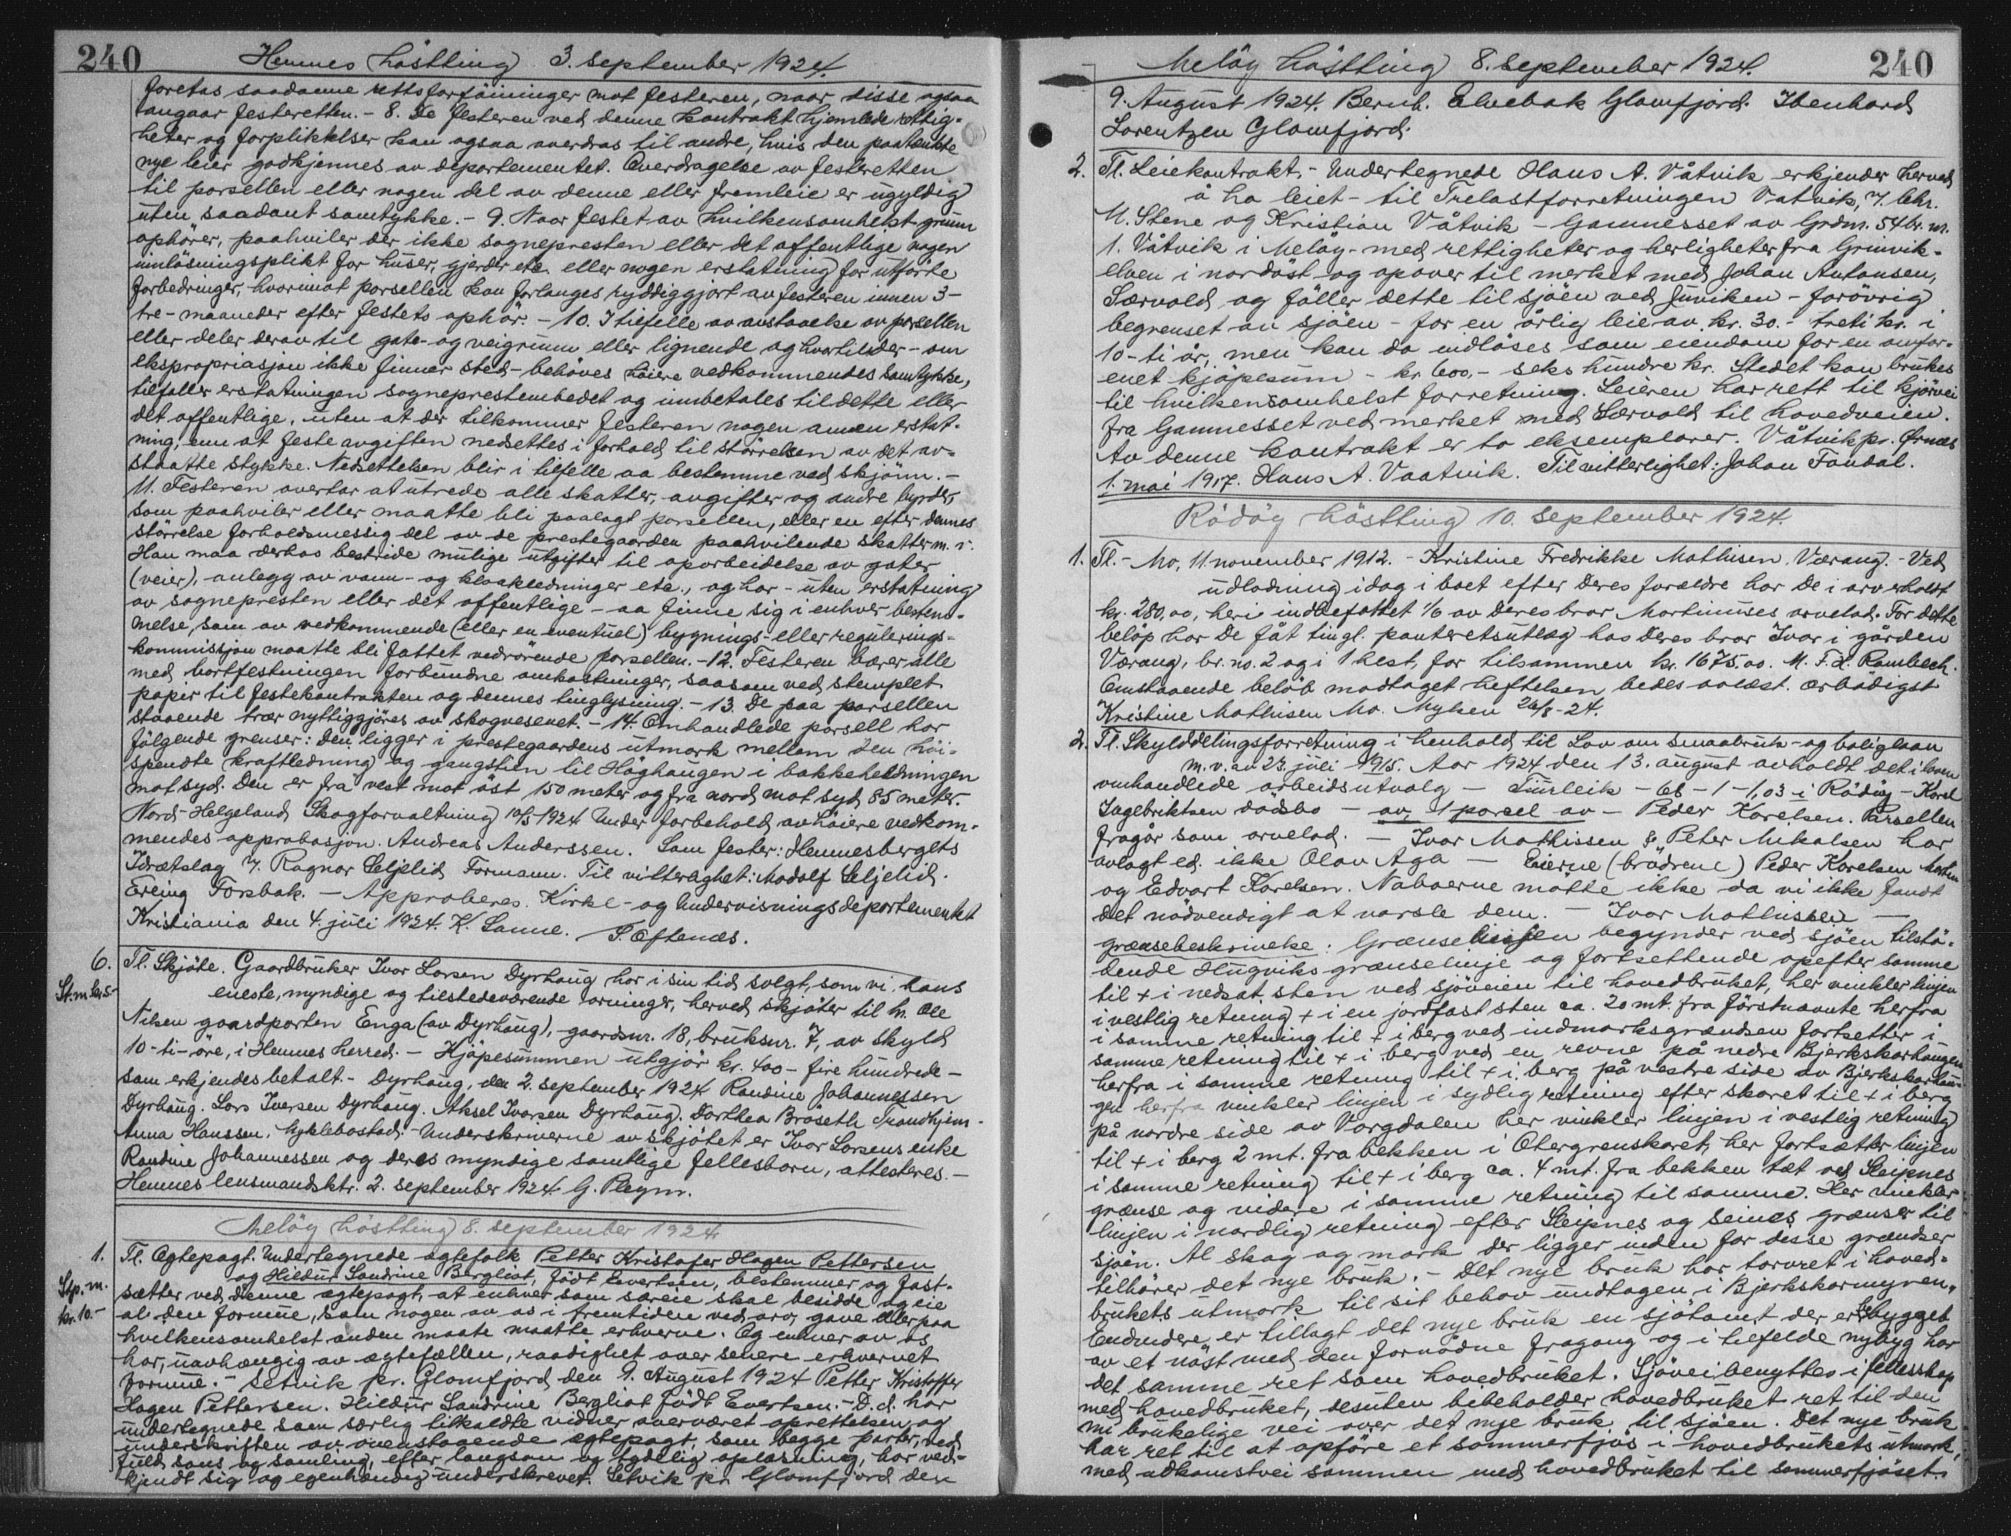 240
Hemnes hösttING 3. september 1924.
foretas saadanne rettsforföininger mot festeren, naar disse ogsaa
angaar festeretten. - 8. De festeren ved denne kontrakt hjemlede rettig-
heter og forpliktelser kan ogsaa overdras til andre, hvis den paatænkte
nye leier godkjennes av departementet. Overdragelse av festeretten
til parsellen eller nogen del av denne eller fremleie er ugyldig
uten saadant samtykke. - 9. Naar festet av hvilkensomhelst grunn
ophører, paahviler der ikke sognepresten eller det offentlige nogen
innlösningsplikt for huser, gjerder etc. eller nogen erstatning for utförte
forbedringer, hvorimot parsellen kan forlanges ryddiggjort av festeren innen 3-
tre - maaneder efter festets ophör. - 10. I tilfelle av avstaaelse av parsellen
eller deler derav til gate- og veigrunn eller lignende og hvortil der - om
ekspropriasjon ikke finner sted - behöves höiere vedkommendes samtykke,
tilfaller erstatningen sogneprestembedet og innbetales til dette eller
det offentlige, uten at der tilkommer festeren nogen annen erstat-
ning, enn at festeavgiften nedsettes i forhold til störrelsen av det av-
staatte stykke. Nedsettelsen blir i tilfelle aa bestemme ved skjönn. -
11. Festeren overtar at utrede alle skatter, avgifter og andre byrder,
som paahviler eller maatte bli paalagt parsellen, eller en efter dennes
störrelse forholdsmessig del av de prestegaarden paahvilende skatter m.v.
Han maa derhos bestride mulige utgifter til oparbeidelse av gater
(veier), anlegg av vann- og kloakledninger etc., og har - uten erstatning
av sognepresten eller det offentlige - aa finne sig i enhver bestem-
melse, som av vedkommende (eller en eventuel) bygnings- eller regulerings-
kommissjon maatte bli fattet vedrörende parsellen. - 12. Festeren bærer alle
med bortfestningen forbundne omkostninger, saasom ved stemplet
papir til festekontrakten og dennes tinglysning. - 13. De paa parsellen
staaende trær nyttiggjöres av skogvesenet. - 14. Omhandlede parsell har
fölgende grenser: Den ligger i prestegaardens utmark mellem den höi-
spendte kraftledning og gangstien til Höghaugen i bakkeheldningen
mot syd. Den er fra vest mot öst 150 meter og fra nord mot syd 85 meter.
Nord-Helgeland Skogforvaltning 10/5 1924 Under forbehold av höiere vedkom-
mendes approbasjon. Andreas Anderssen. Som fester: Hemnesbergets
Idrætslag v. Ragnar Seljelid Formann. Til vitterlighet: Modolf Seljelid.
Erling Forsbak. - Approberes. Kirke- og Undervisningsdepartementet
Kristiania den 4. juli 1924. K. Sanne. P. Oftenæs.
6. Tl. Skjöte. Gaardbruker Ivar Larsen Dyrhaug har i sin tid solgt, som vi, hans
St.m.kr.5- eneste, myndige og tilstedeværende arvinger, herved skjöter til hr. Ole
Nilsen gaardparten Enga (av Dyrhaug), gaardsnr. 18, bruksnr. 7, av skyld
10 - ti - öre, i Hemnes herred. - Kjöpesummen utgjör kr. 400 - fire hundrede -
som erkjendes betalt. - Dyrhaug, den 2. september 1924 Randine Johannessen
Dyrhaug. Lars Iversen Dyrhaug. Aksel Ivarsen Dyrhaug. Dorthea Bröseth Trondhjem.
Anna Hanssen, Myklebostad. - Underskriverne av skjötet er Ivar Larsens enke
Randine Johannessen og deres myndige samtlige fellesbarn, attesteres. -
Hemnes lensmandsktr. 2. september 1924 G. Pleym.
Melöy hösttING 8. september 1924
1. Tl. Egtepagt. Undertegnede egtefolk Petter Kristofer Hagen Pettersen
Stp. m. kr. 10.- og Hildur Sandrine Bergliot, födt Evertsen, bestemmer og fast-
sætter ved denne egtepagt, at enhver som særeie skal besidde og eie
al den formue, som nogen av os i fremtiden ved arv, gave eller paa
hvilkensomhelst anden maate maatte erhverve. Og enhver av os
har, uavhængig av ægtefællen, raadighet over senere erhvervet
formue. - Setvik pr. Glomfjord den 9. August 1924 Petter Kristoffer
Hagen Pettersen. Hildur Sandrine Bergliot födt Evertsen. - D.d. har
undertegnede som særlig tilkaldte vidner overværet oprettelsen og
underskriften av ovenstaaende egtepagt, som begge parter, ved
fuld sans og samling, efter langsom og tydelig oplæsning, har ved-
kjendt sig og egenhændig underskrevet. Setvik pr. Glomfjord den
240
Melöy hösttING 8. september 1924.
9. August 1924. Bernh. Elvebak Glomfjord. Ibenhard
Lorentzen Glomfjord.
2. Tl. Leiekontrakt. - Undertegnede Hans A. Våtvik erkjender herved
å ha leiet - til Trelastforretningen Vatvik, v. lehr.
M. Stene og Kristian Våtvik - Gamnesset av Grdn. 54 br. nr.
1. Våtvik i Melöy - med rettigheter og herligheter fra Grinvik-
elven i nordöst og opover til merket med Johan Antonsen,
Sørvold og föller dette til sjöen ved Juviken - forövrig
begrenset av sjöen - for en årlig leie av kr. 30.- treti kr. i
10 - ti år, men kan da indlöses som eiendom for en omfor-
enet kjöpesum - kr. 600,- seks hundre kr. Stedet kan brukes
til hvilkensomhelst forretning. Leieren har rett til kjörvei
fra Gamnesset ved merket med Sørvold til hovedveien.
Av denne kontrakt er to eksemplarer. Våtvik pr. Ørnes
1. mai 1917. Hans A. Vaatvik. Til vitterlighet: Johan Fondal.
Rödöy hösttING 10. september 1924.
1. Tl. - Mo, 11 november 1912. - Kristine Fredrikke Mathisen, Værang. - Ved
udlodning idag i boet efter Deres forældre har De i arv erholdt
kr. 280,00, heri indbefattet 1/6 av Deres bror Martinuses arvelod. For dette
belöp har De fåt tingl. panteretsutlæg hos Deres bror Ivar i gården
Værang, br. no. 2 og i 1 hest, for tilsammen kr. 1675,00. M. F. d. Rambech.
Omstaaende beløb modtaget heftelsen bedes avlæst. ærbödigst
Kristine Mathisen Mo. Myken 26/8-24.
2. Tl. Skylddelingsforretning i henhold til Lov om smaabruk- og boliglaan
m.v. av 23. juli 1915. Aar 1924 den 13. august avholdt det i loven
omhandlede arbeidsutvalg - Tunleik - 68 - 1 - 1,03 i Rödöy - Karel
Ingebriktsen dødsbo - av 1 parsel av - Peder Karelsen. Parsellen
fragår som arvelod. - Ivar Mathissen & Peter Mikalsen har
avlagt ed. ikke Olav Aga - Eierne (brödrene) Peder Karelsen Morten
og Edvart Karelsen. Naboerne mötte ikke da vi ikke fandt
det nödvendigt at varsle dem. - Ivar Mathissen -
grænsebeskrivelse: Grænselinjen begynder ved sjöen tilstö-
dende Hugviks grænselinje og fortsettende opefter samme
til + i nedsat sten ved sjöveien til hovedbruket, her vinkler linjen
i vestlig retning + i en jordfast sten ca. 20 mt. fra förstnævnte herfra
i samme retning til + i berg ved indmarksgrændsen fortsetter i
samme retning til + i berg ved en revne på nedre Bjerkskarhaugen
herfra i samme retning til + i berg på vestre side av Bjerkskarhau-
gen herfra vinkler linjen i sydlig retning efter skaret til + i berg
på nordre side av Vargdalen her vinkler linjen i vestlig retning
til + i berg 2 mt. fra bekken i Otergrenskaret, her fortsætter linjen
i samme retning til + i berg ca. 4 mt. fra bekken tæt ved Sleipnes
grænse og videre i samme retning til samme. Her vinkler
linjen i nordlig retning efter Sleipnes og Seines grænser til
sjöen. Al skog og mark der ligger inden for desse grændser
tilhörer det nye bruk. - Det nye bruk har torvret i hoved-
brukets utmark til sit behov undtagen i Bjerkskarmyren.
Endvidere er tillagt det nye bruk en sjötomt der er bebygget
av et nöst med den fornödne fragang og i tilfelde nybyg har
det samme ret som hovedbruket. Sjövei benyttes i fellesskap
med hovedbruket, desuten bibeholder hovedbruket ret til den
nu brukelige vei over det nye bruk til sjöen. Det nye bruk
har ret til at opföre et sommerfjös i hovedbrukets utmark,
med adkomstvei sammen med hovedbruket til sommerfjöset.